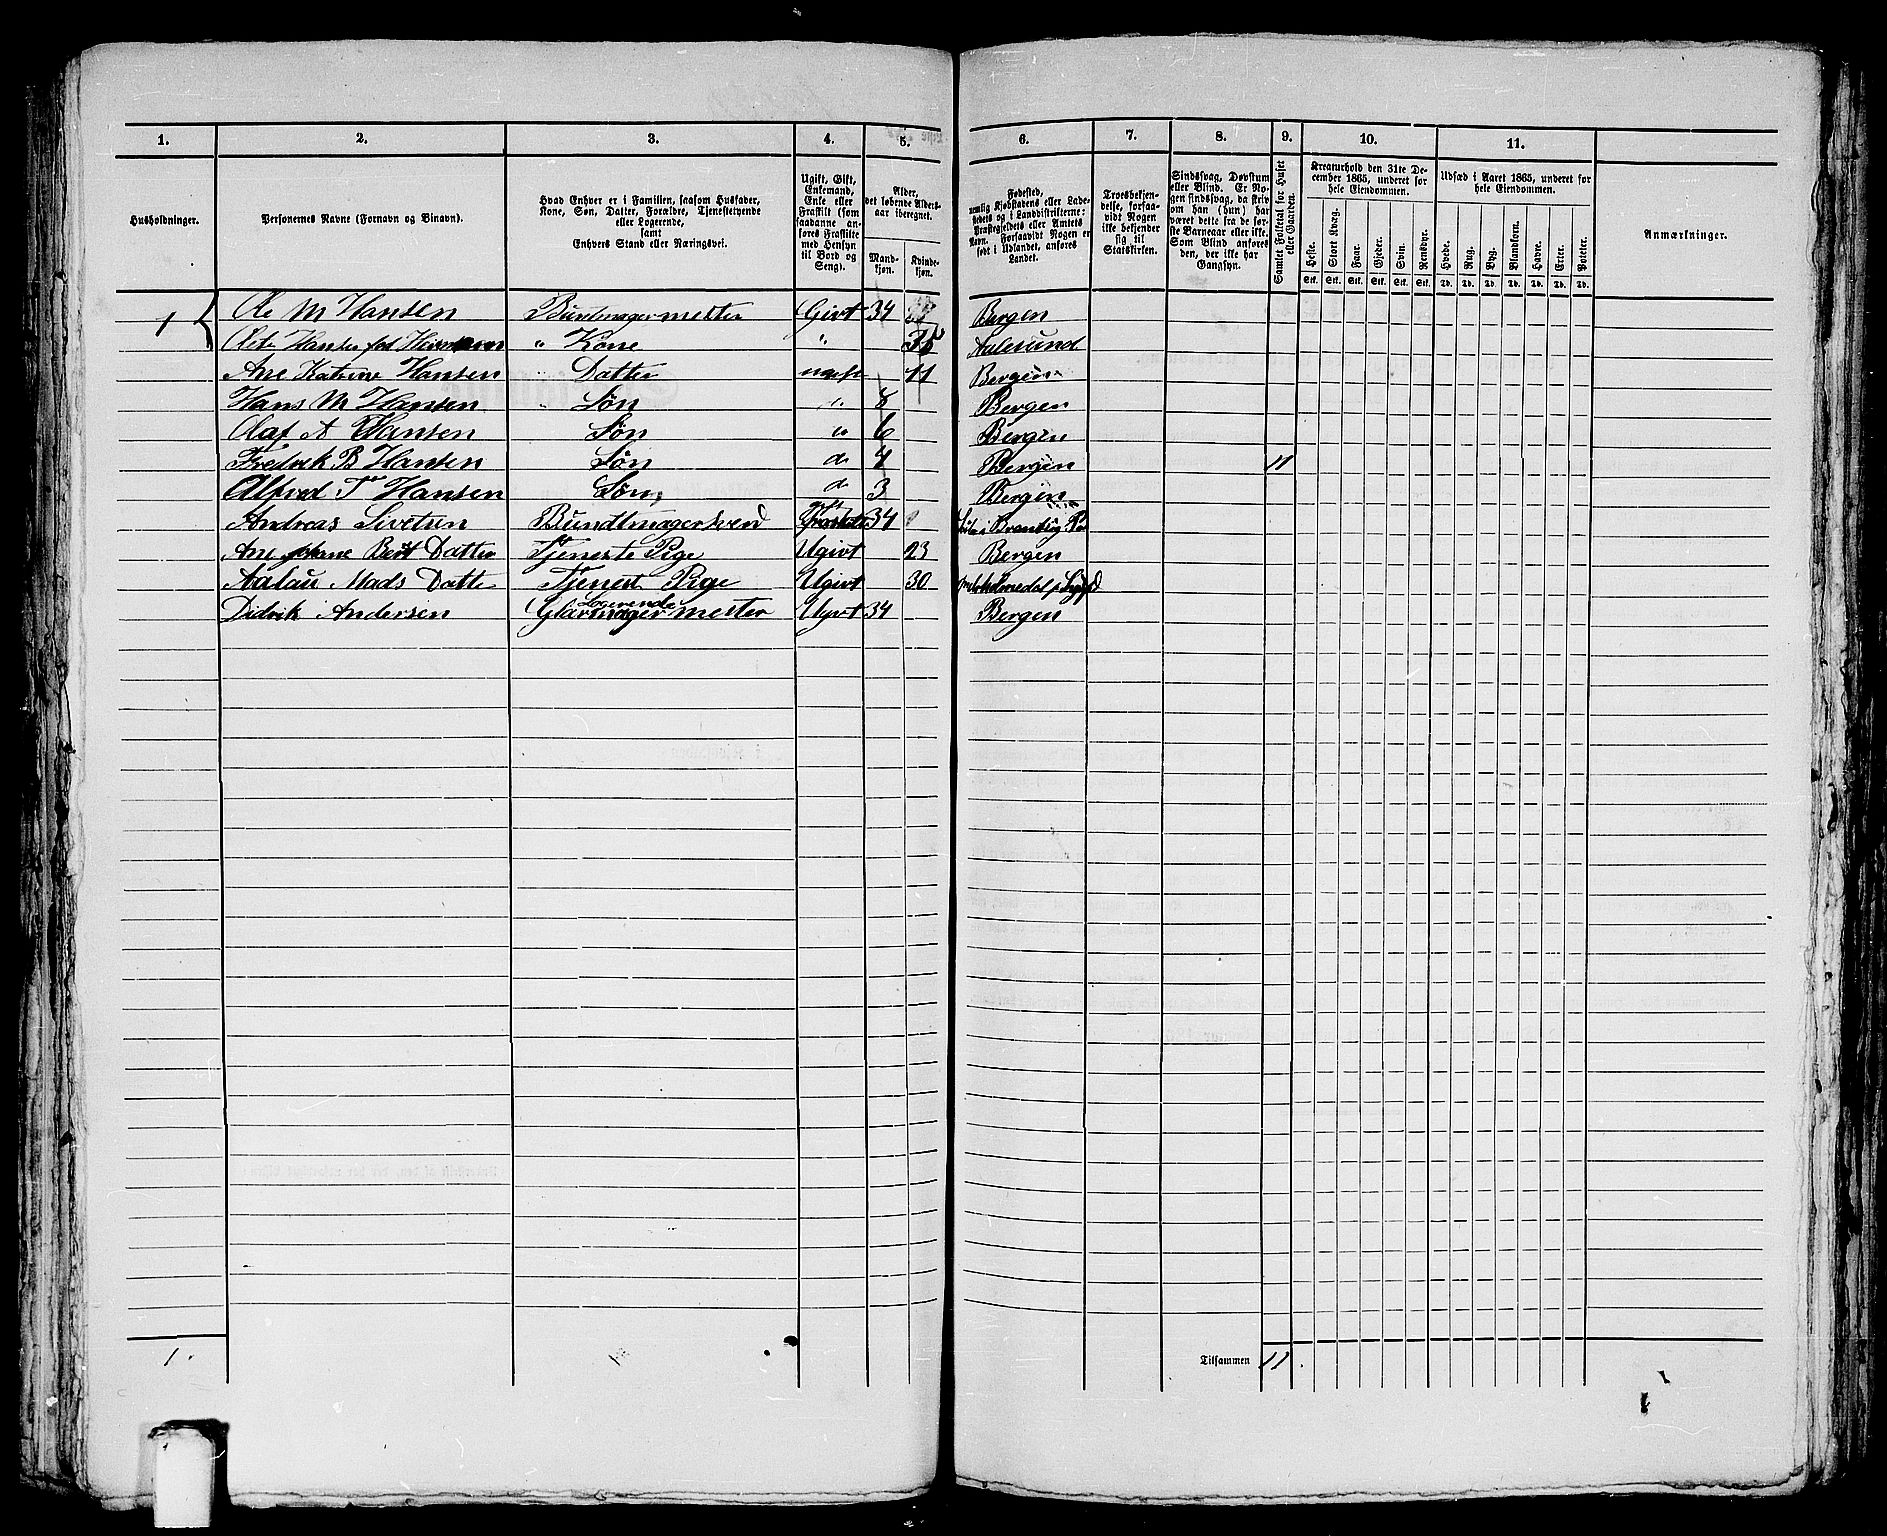 1. 2. 3. 4. 5. 6. 7. 8. 9. 10. 11.
Husholdninger.
Personernes Navne (Fornavn og Binavn).
Hvad Enhver er i Familien, saasom Husfader,
Kone, Søn, Datter, Forældre, Tjenestetyende
eller Logerende,
samt
Enhvers Stand eller Næringsvei.
Ugift, Gift,
Enkemand,
Enke eller
Fraskilt (som
saadanne an-
føres Fraskilte
med Hensyn
til Bord og
Seng).
Alder,
det løbende Alders-
aar iberegnet.
Mand-
kjøn.
Kvinde-
kjøn.
Fødested,
nemlig Kjøbstadens eller Lade-
stedets og i Landdistrikterne:
Præstegjeldets eller Amtets
Navn. Forsaavidt Nogen er
født i Udlandet, anføres
Landet.
Troesbekjen-
delse, forsaa-
vidt Nogen
ikke bekjender
sig til
Statskirken.
Sindssvag, Døvstum
eller Blind. Er No-
gen sindssvag, da skriv
om han (hun) har
været dette fra de før-
ste Barneaar eller ikke.
Som Blind anføres
den, der ikke har
Gangsyn.
Samlet Folketal for Huset
eller Gaarden.
Kreaturhold den 31te De-
cember 1865, underet for
hele Eiendommen.
Heste. Stort Kvæg. Faar. Gjeder. Svin. Rensdyr.
Stk. Stk. Stk. Stk. Stk. Stk.
Udsæd i Aaret 1865, underet for
hele Eiendommen.
Hvede. Rug. Byg. Blandkorn. Havre. Erter. Poteter.
Td. Td. Td. Td. Td. Td. Td.
Anmærkninger.
1 Ole M Hansen Buntmagermester Givt 34 Bergen
Hansen fød " Kone " 35 Aalesund
Ane Katrine Hansen Datter ugift 11 Bergen
Hans M Hansen Søn 8 Bergen
Olaf A Hansen Søn 6 Bergen
Fredrik B Hansen Søn do 4 Bergen 11
Alfred T Hansen Søn do 3 Bergen
Andreas Sivetsen Bundtmagersvend 34
Ane Bert Datter Tjeneste Pige Ugivt 23 Bergen
Mads Datte Tjenest Pige Ugivt 30
Logerende
Didrik Andersen Glarmager mester Ugivt 34 Bergen
1. Tilsammen 11.